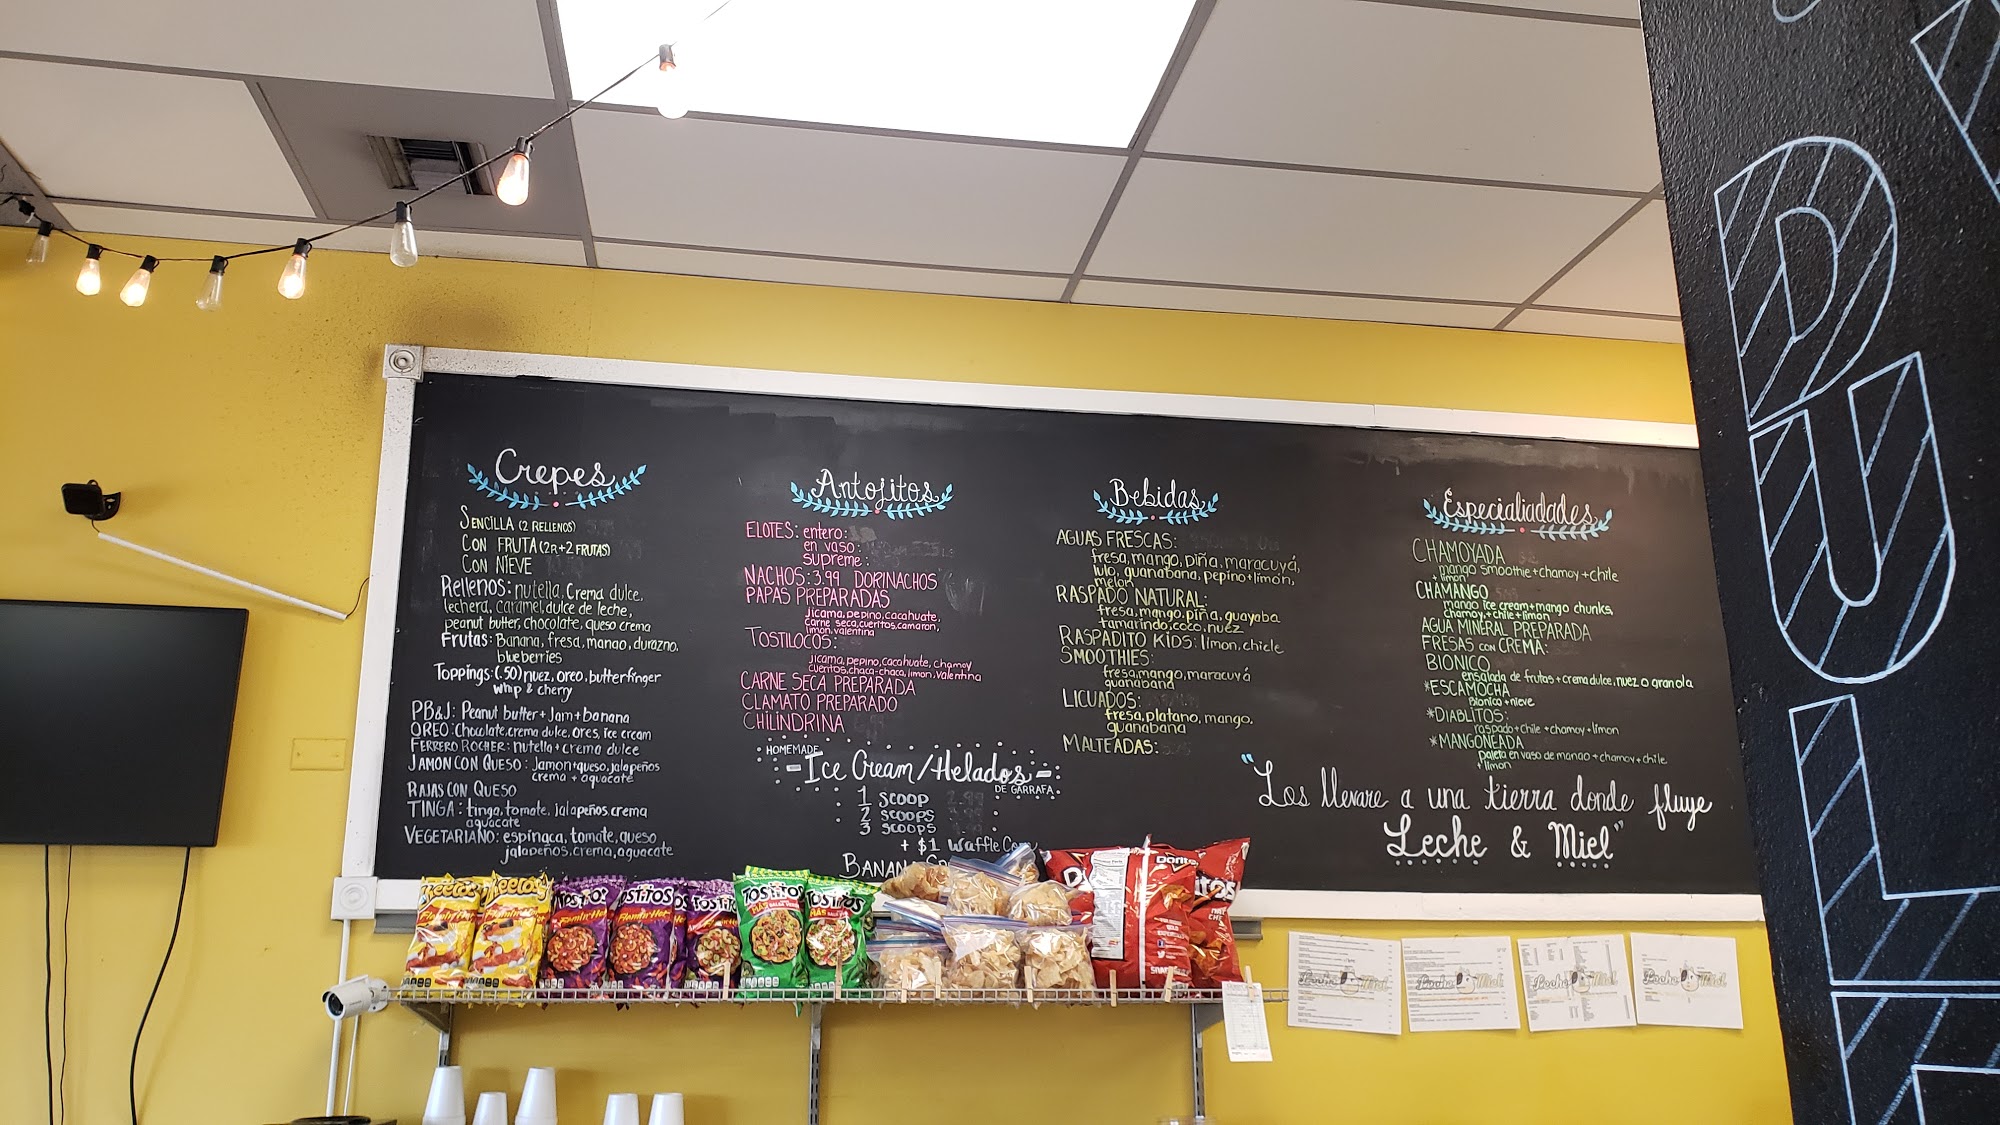 Crepes
SENCILLA (2 RELLENOS)
CON FRUTA (2R+2 FRUTAS)
CON NIEVE
Rellenos: nutella, Crema dulce,
lechera, caramel, dulce de leche,
peanut butter, chocolate, queso crema
Frutas: Banana, fresa, mango, durazno,
blueberries
Toppings: (.50) nuez, oreo, butterfinger
whip & cherry
PB&J: Peanut butter + Jam + banana
OREO: Chocolate, crema dulce, ores, ice cream
FERRERO ROCHER: nutella + crema dulce
JAMON CON QUESO: Jamon+queso, jalapeños
crema + aguacate
RAJAS CON QUESO
TINGA: tinga, tomate, jalapeños, crema
aguacate
VEGETARIANO: espinaca, tomate, queso,
jalapeños, crema, aguacate
Antojitos
ELOTES: entero:
en vaso:
supreme:
NACHOS: 3.99 DORINACHOS
PAPAS PREPARADAS
Jicama, pepino, cacahuate,
Carne seca, cueritos, camaron,
limon, valentina
TOSTILOCOS:
Jicama, pepino, cacahuate, chamoy
cueritos, chaca-chaca, limon, valentina
CARNE SECA PREPARADA
CLAMATO PREPARADO
CHILINDRINA
HOMEMADE
-Ice Cream/Helados-
DE GARRAFA
1 SCOOP
2 SCOOPS
3 SCOOPS
+ $1 Waffle
BANANA
Bebidas
AGUAS FRESCAS:
fresa, mango, piña, maracuyá,
lulo, guanabana, pepino+limón,
melon
RASPADO NATURAL:
fresa, mango, piña, guayaba
tamarindo, coco, nuez
RASPADITO KIDS: limon, chicle
SMOOTHIES:
fresa, mango, maracuyá
guanabana
LICUADOS:
fresa, platano, mango,
guanabana
MALTEADAS:
Especialiadades
CHAMOYADA
mango smoothie+chamoy+chile
+limon
CHAMANGO
mango ice cream+mango chunks,
chamoy+chile+limon
AGUA MINERAL PREPARADA
FRESAS CON CREMA:
BIONICO
ensalada de frutas+crema dulce, nuez o granola
*ESCAMOCHA
Bionico+nieve
*DIABLITOS:
raspado+chile+chamoy+limon
*MANGONEADA
paleta en vaso de mango+chamoy+chile
+limon
"Los llevare a una tierra donde fluye
Leche & Miel"
DUL
Cheetos
Flamin' Hot
Cheetos
Flamin' Hot
TOSTITOS
Flamin' Hot
TOSTITOS
Flamin' Hot
TOSTITOS
TOSTITOS
SALSA VERDE
TOSTITOS
SALSA VERDE
Doritos
Leche Miel
Leche Miel
Leche Miel
Leche Miel